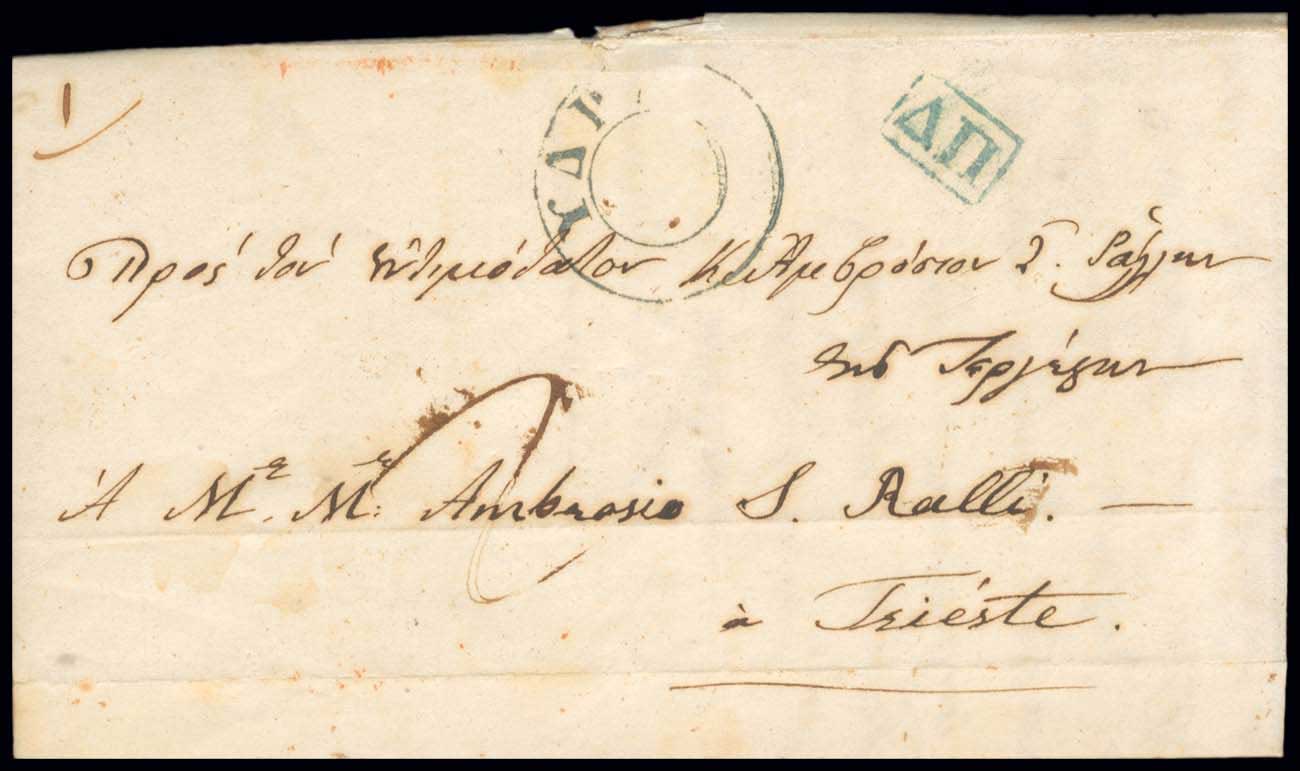 1
ΥΔΡ
ΔΠ
Πρὸς τὸν Κ. Ἀμβρόσιον Σ. Ράλλην
εἰς Τεργέστην
A Mr. Mr. Ambrosio S. Ralli. —
à Triéste.